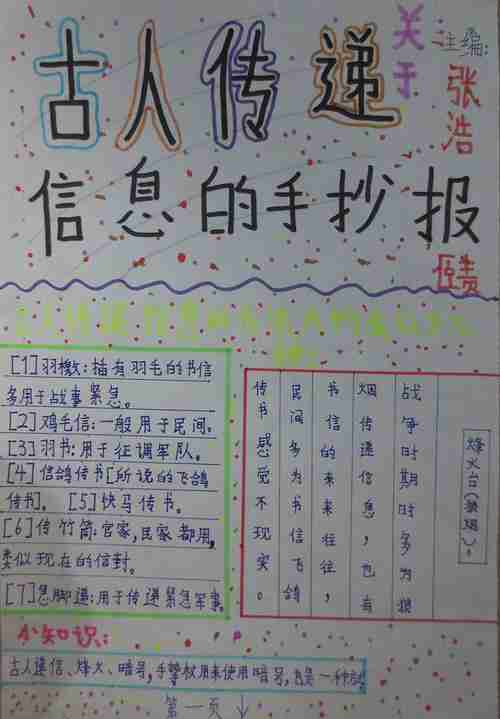 关于
主编:
张浩
古人传递
信息的手抄报
[1]羽檄:插有羽毛的书信
多用于战事紧急。
[2]鸡毛信:一般用于民间。
[3]羽书:用于征调军队。
[4]信鸽传书[所说的飞鸽
传书]。 [5]快马传书。
[6]传竹筒:官家,民家都用,
类似现在的信封。
[7]急脚递:用于传递紧急军事
烽火台(狼烟)。
战争时期时多为狼
烟传递信息,也有
书信的来来往往,
民间多为书信飞鸽
传书感觉不现实。
小知识:
古人通信、烽火、暗号,手 来使用暗号, 一种
第一页↓